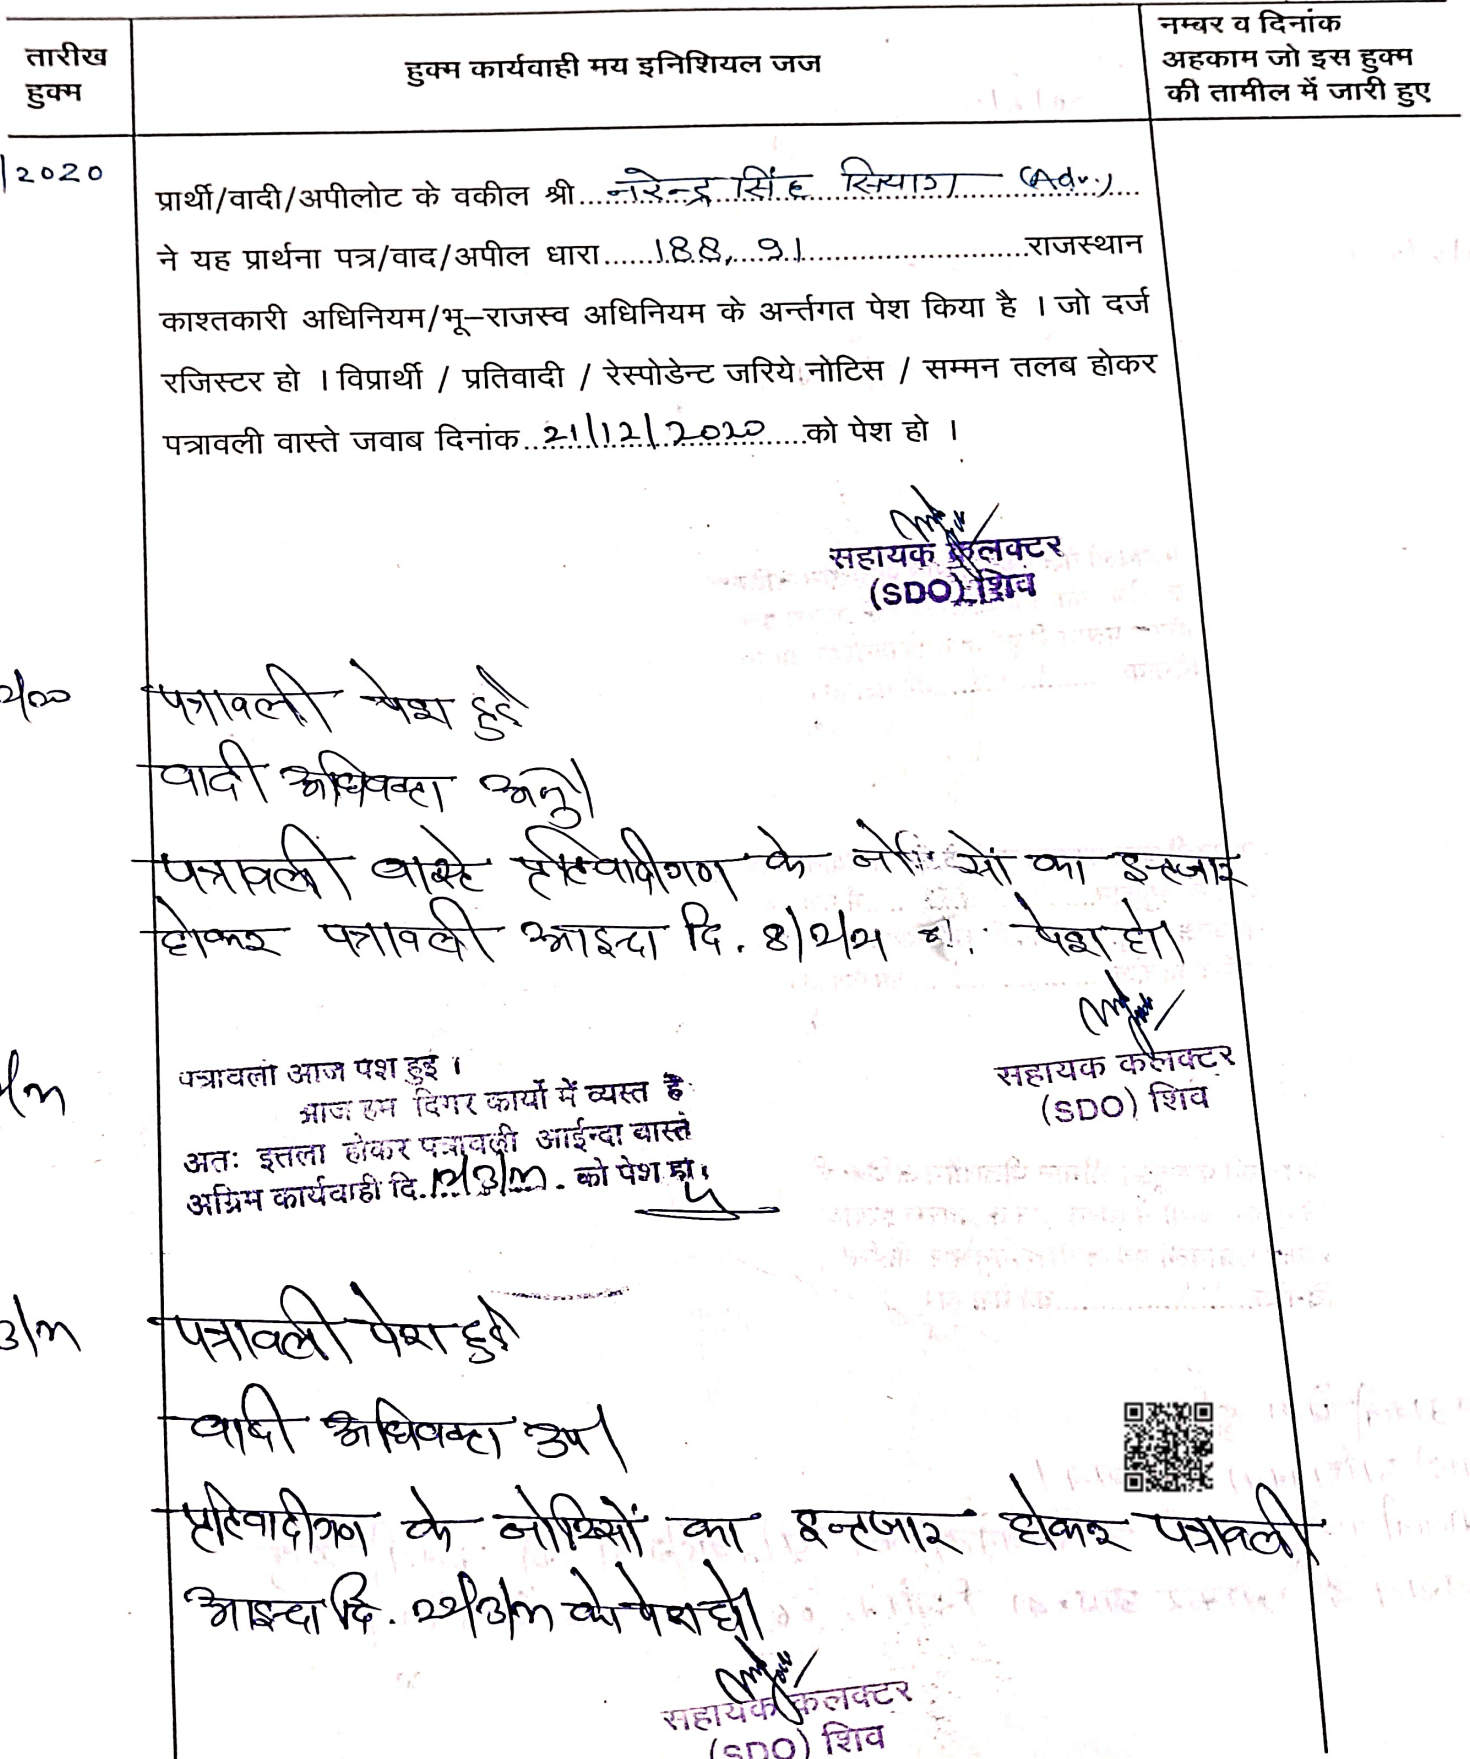 तारीख
हुक्म
हुक्म कार्यवाही मय इनिशियल जज
नम्बर व दिनांक
अहकाम जो इस हुक्म
की तामील में जारी हुए
/2020
प्रार्थी/वादी/अपीलोट के वकील श्री....नरेन्द्र सिंह सियाग (Adv.)....
ने यह प्रार्थना पत्र/वाद/अपील धारा......188, 91......राजस्थान
काश्तकारी अधिनियम/भू–राजस्व अधिनियम के अर्न्तगत पेश किया है । जो दर्ज
रजिस्टर हो । विप्रार्थी / प्रतिवादी / रेस्पोडेन्ट जरिये नोटिस / सम्मन तलब होकर
पत्रावली वास्ते जवाब दिनांक..21/12/2020....को पेश हो ।
सहायक कलक्टर
(SDO) शिव
पत्रावली पेश हुई
वादी अधिवक्ता अनु।
पत्रावली वास्ते प्रतिवादीगण के नोटिसों का इन्तजार
होकर पत्रावली आइन्दा दि. पेश हो।
सहायक कलक्टर
(SDO) शिव
पत्रावली आज पेश हुई ।
आज हम दिगर कार्यो में व्यस्त है
अतः इत्तला होकर पत्रावली आईन्दा वास्ते
अग्रिम कार्यवाही दि. को पेश हो।
पत्रावली पेश हुई
वादी अधिवक्ता उप।
प्रतिवादीगण के नोटिसों का इन्तजार होकर पत्रावली
आइन्दा दि. को पेश हो।
सहायक कलक्टर
(SDO) शिव